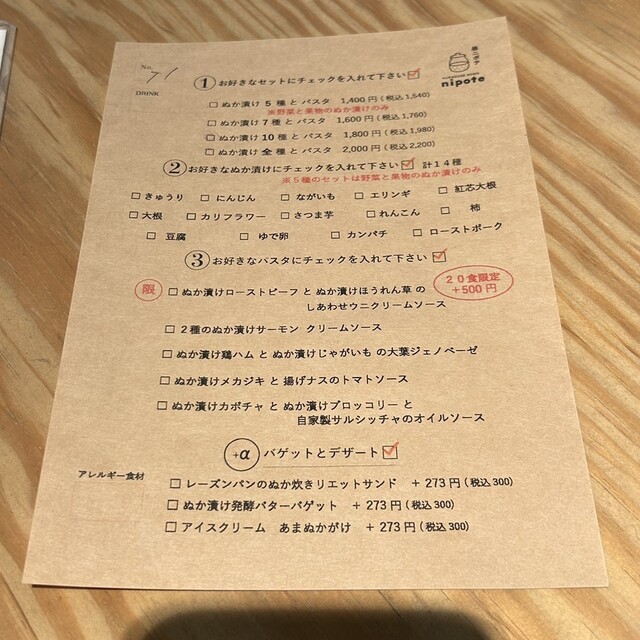 No. 71
DRINK
糠ニボテ
nipote
① お好きなセットにチェックを入れて下さい☑
□ ぬか漬け 5 種 と パスタ 1,400 円 (税込 1,540)
※野菜と果物のぬか漬けのみ
□ ぬか漬け 7 種 と パスタ 1,600 円 (税込 1,760)
□ ぬか漬け 10 種 と パスタ 1,800 円 (税込 1,980)
□ ぬか漬け 全 種 と パスタ 2,000 円 (税込 2,200)
② お好きなぬか漬けにチェックを入れて下さい☑ 計14種
※5種のセットは野菜と果物のぬか漬けのみ
□ きゅうり □ にんじん □ ながいも □ エリンギ □ 紅芯大根
□ 大根 □ カリフラワー □ さつま芋 □ れんこん □ 柿
□ 豆腐 □ ゆで卵 □ カンパチ □ ローストポーク
③ お好きなパスタにチェックを入れて下さい☑
限 □ ぬか漬けローストビーフ と ぬか漬けほうれん草 の
しあわせウニクリームソース
20食限定
+500円
□ 2種のぬか漬けサーモン クリームソース
□ ぬか漬け鶏ハム と ぬか漬けじゃがいも の大葉ジェノベーゼ
□ ぬか漬けメカジキ と 揚げナスのトマトソース
□ ぬか漬けカボチャ と ぬか漬けブロッコリー と
自家製サルシッチャのオイルソース
+α バゲットとデザート☑
アレルギー食材
□ レーズンパンのぬか炊きリエットサンド + 273 円 (税込 300)
□ ぬか漬け発酵バターバゲット + 273 円 (税込 300)
□ アイスクリーム あまぬかがけ + 273 円 (税込 300)